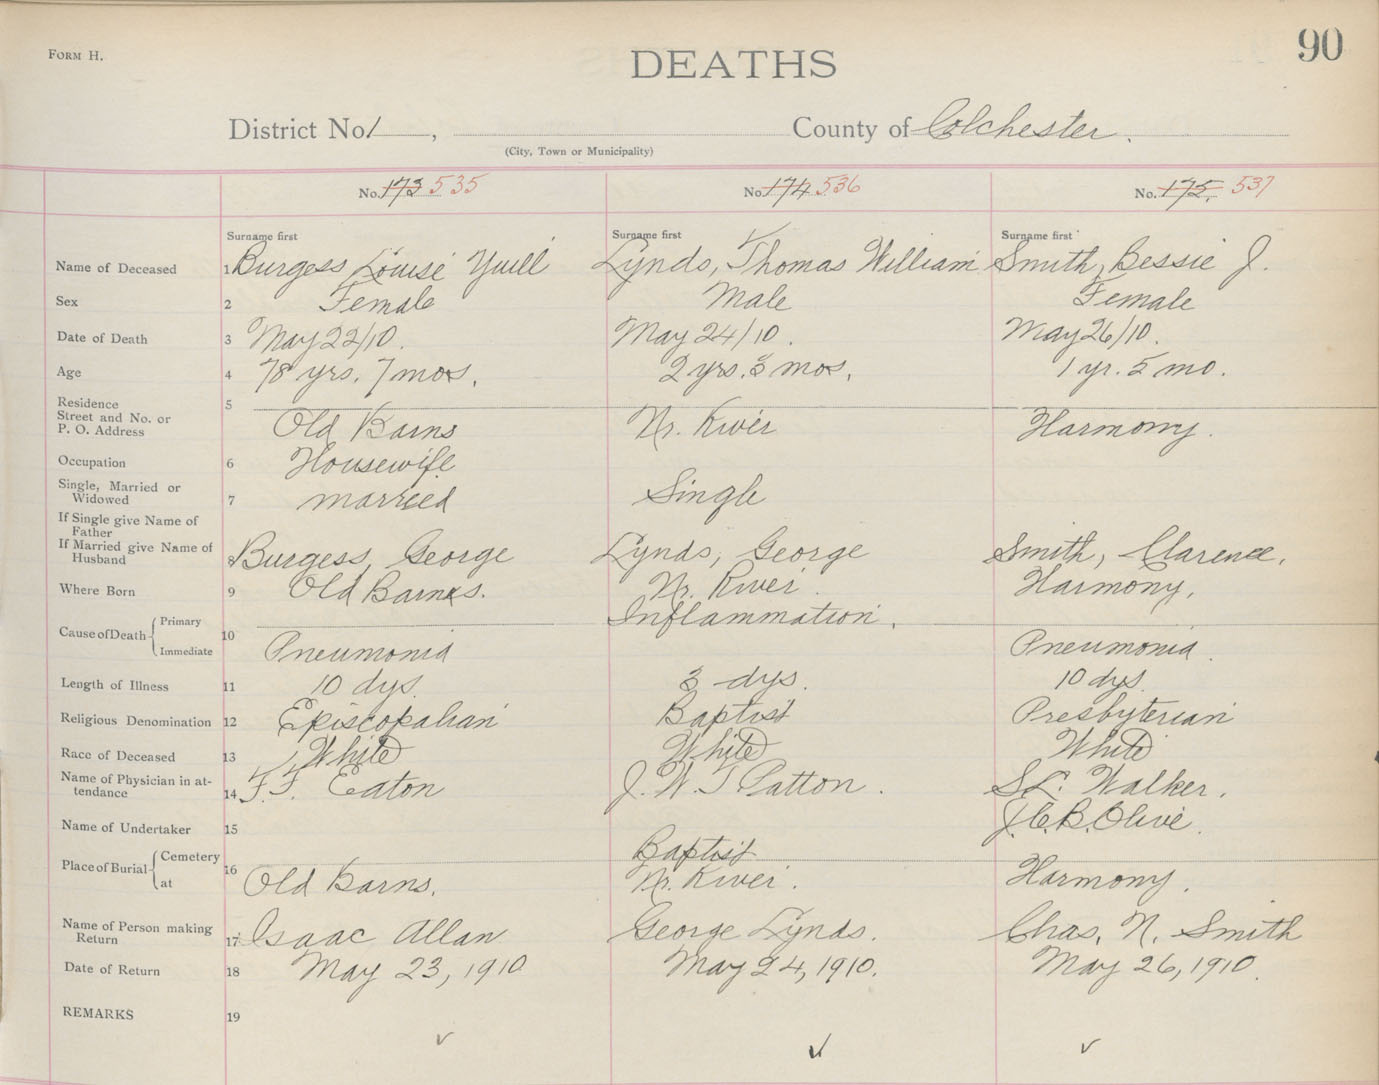 FORM H.
DEATHS
90
District No 1 , County of Colchester.
(City, Town or Municipality)
No. 173 535 No. 174 536 No. 175. 537
Surname first Surname first Surname first
Name of Deceased 1 Burgess, Louise Yuill Lynds, Thomas William Smith, Bessie J.
Sex 2 Female Male Female
Date of Death 3 May 22/10. May 24/10. May 26/10.
Age 4 78 yrs. 7 mos. 2 yrs. 3 mos. 1 yr. 5 mo.
Residence 5
Street and No. or
P. O. Address Old Barns Nr. River Harmony.
Occupation 6 Housewife
Single, Married or
Widowed 7 married Single
If Single give Name of
Father
If Married give Name of
Husband 8 Burgess, George Lynds, George Smith, Clarence.
Where Born 9 Old Barns. Nr. River. Harmony.
Cause of Death Primary 10 Inflammation.
Immediate Pneumonia Pneumonia.
Length of Illness 11 10 dys. 3 dys. 10 dys.
Religious Denomination 12 Episcopalian Baptist Presbyterian
Race of Deceased 13 White White White
Name of Physician in at-
tendance 14 F. F. Eaton J. W. T Patton. S. L. Walker.
Name of Undertaker 15 J. C. B. Olive.
Place of Burial Cemetery 16 Baptist
at Old Barns. Nr. River. Harmony.
Name of Person making
Return 17 Isaac Allan George Lynds. Chas. N. Smith
Date of Return 18 May 23, 1910 May 24, 1910. May 26, 1910.
REMARKS 19